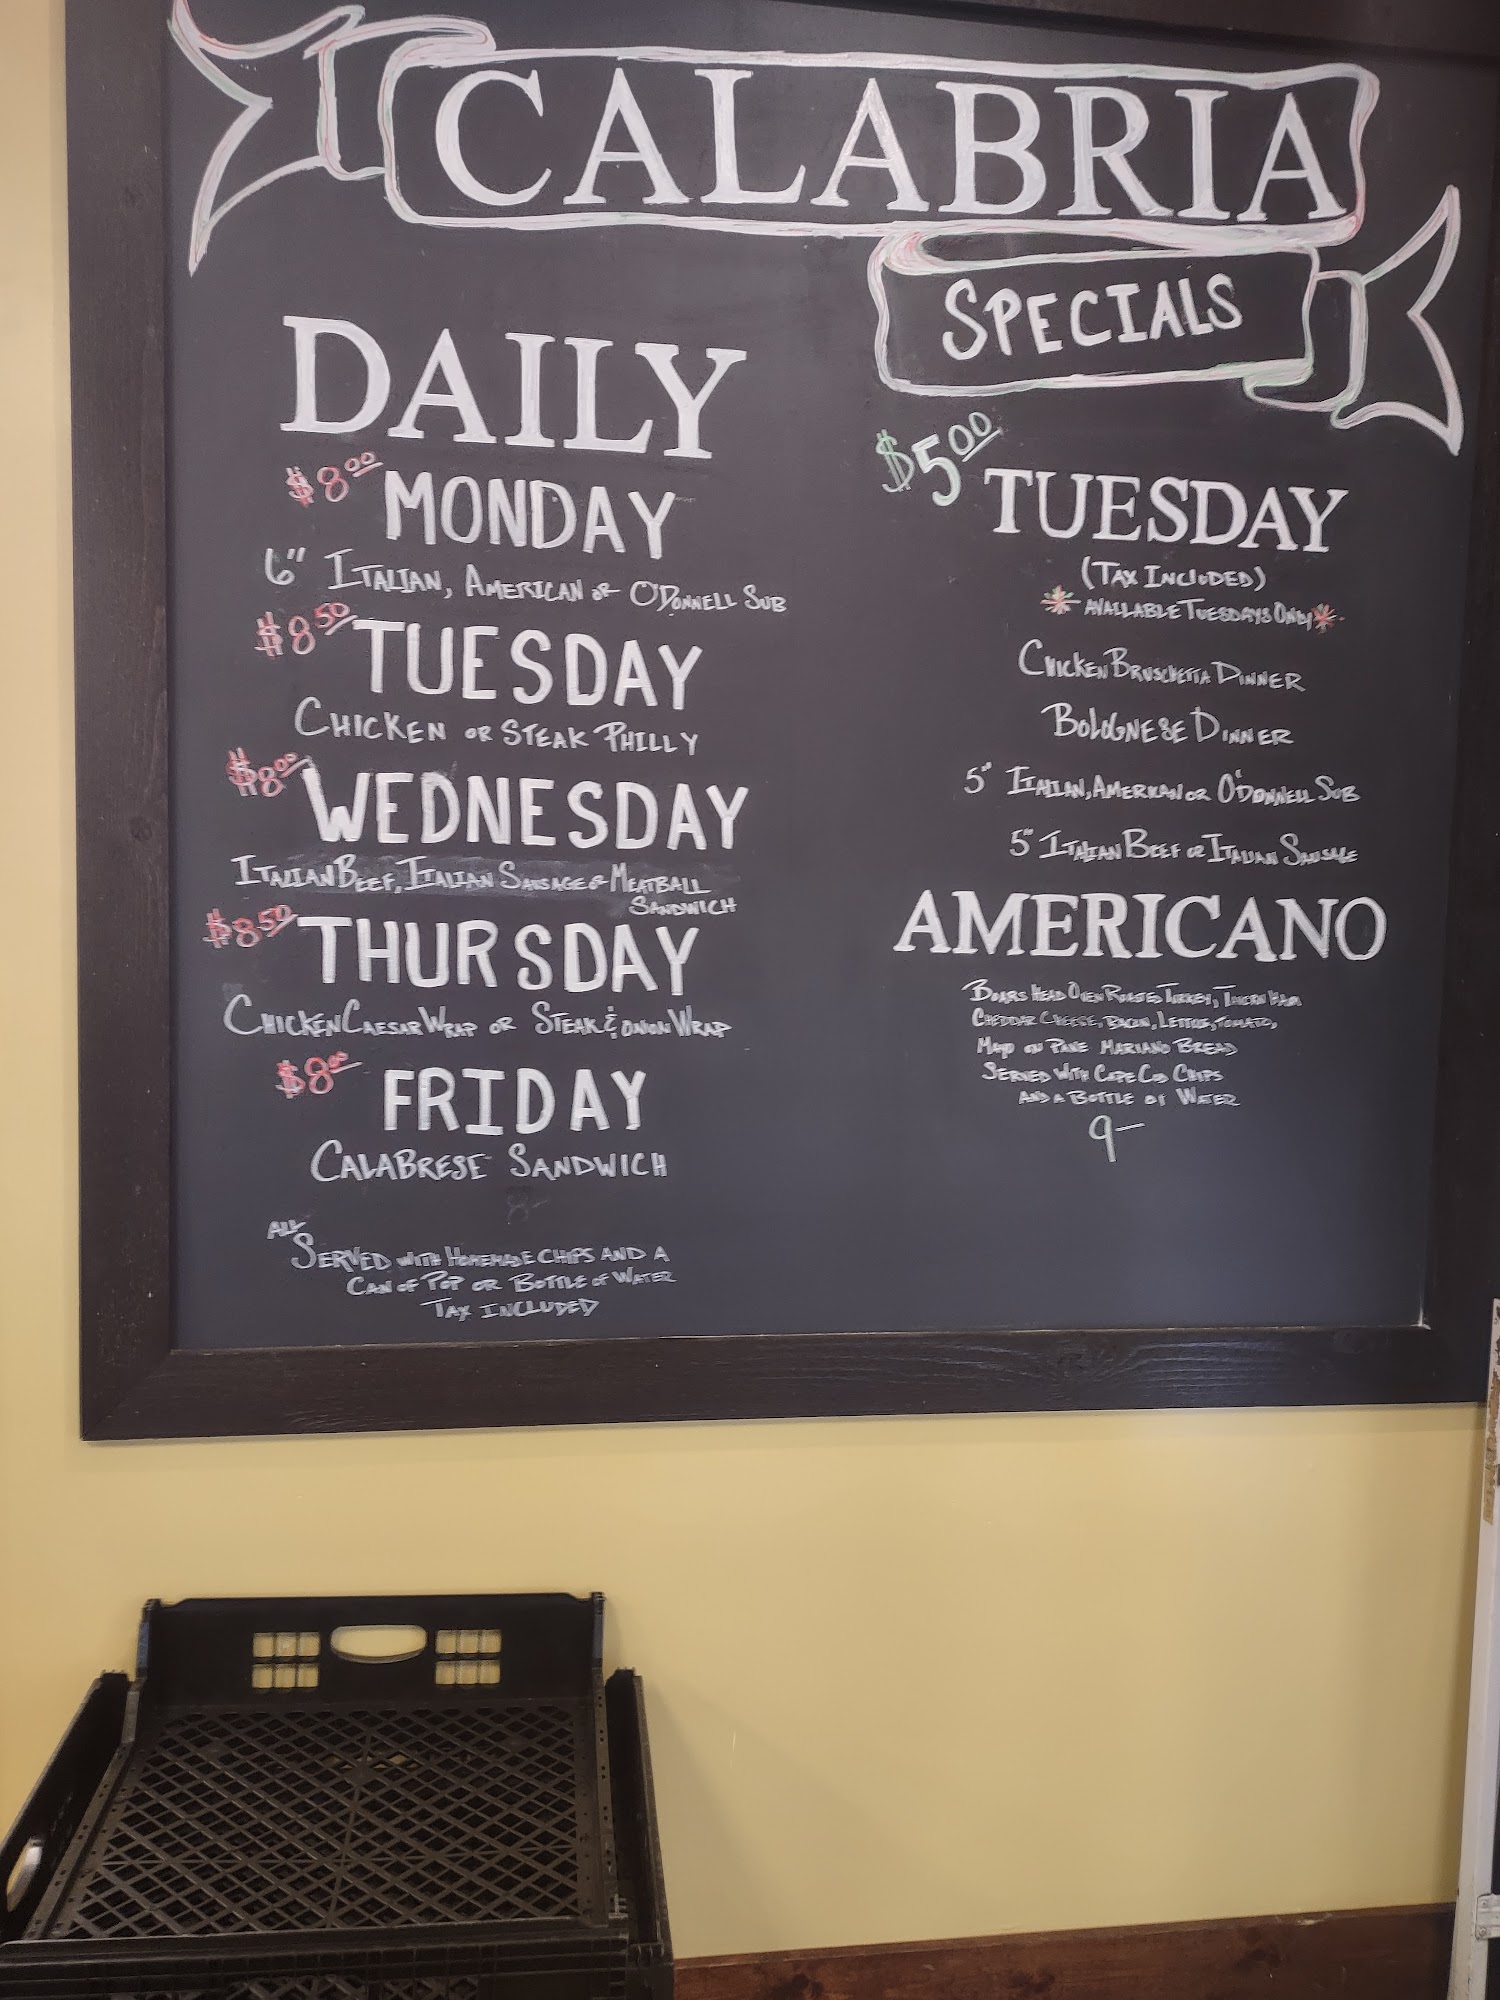 CALABRIA
SPECIALS
DAILY
$8.00 MONDAY
6" ITALIAN, AMERICAN OR O'DONNELL SUB
$8.50 TUESDAY
CHICKEN OR STEAK PHILLY
$8.00 WEDNESDAY
ITALIAN BEEF, ITALIAN SAUSAGE or MEATBALL
SANDWICH
$8.50 THURSDAY
CHICKEN CAESAR WRAP OR STEAK & ONION WRAP
$8.00 FRIDAY
CALABRESE SANDWICH
8-
ALL SERVED WITH HOMEMADE CHIPS AND A
CAN OF POP OR BOTTLE OF WATER
TAX INCLUDED
$5.00 TUESDAY
(TAX INCLUDED)
*AVAILABLE TUESDAYS ONLY*
CHICKEN BRUSCHETTA DINNER
BOLOGNESE DINNER
5" ITALIAN, AMERICAN OR O'DONNELL SUB
5" ITALIAN BEEF OR ITALIAN SAUSAGE
AMERICANO
BOARS HEAD OVEN ROASTED TURKEY, TAVERN HAM
CHEDDAR CHEESE, BACON, LETTUCE, TOMATO,
MAYO ON PANE MARIANO BREAD
SERVED WITH CAPE COD CHIPS
AND A BOTTLE OF WATER
9-